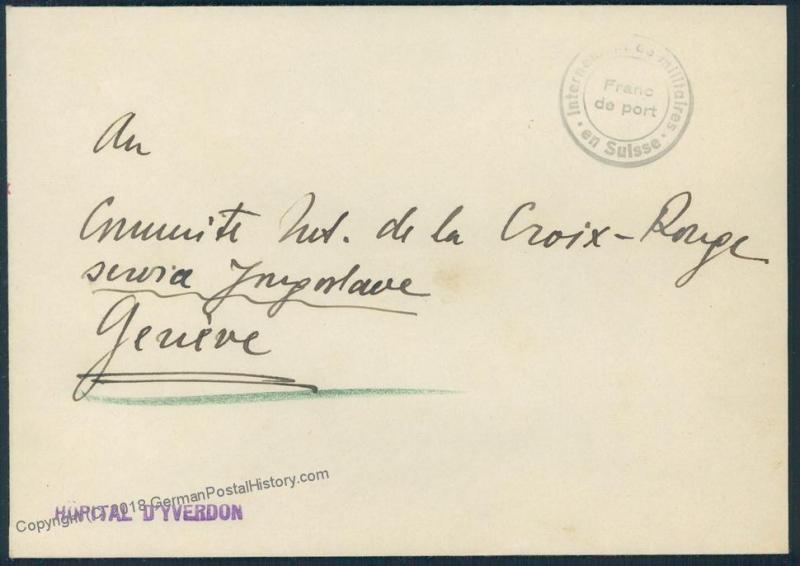 Internement de militaires
· en Suisse ·
Franc
de port
Au
Commité Int. de la Croix-Rouge
servia Jugoslave
Genève
HÔPITAL D'YVERDON
Copyright (C) 2018 GermanPostalHistory.com